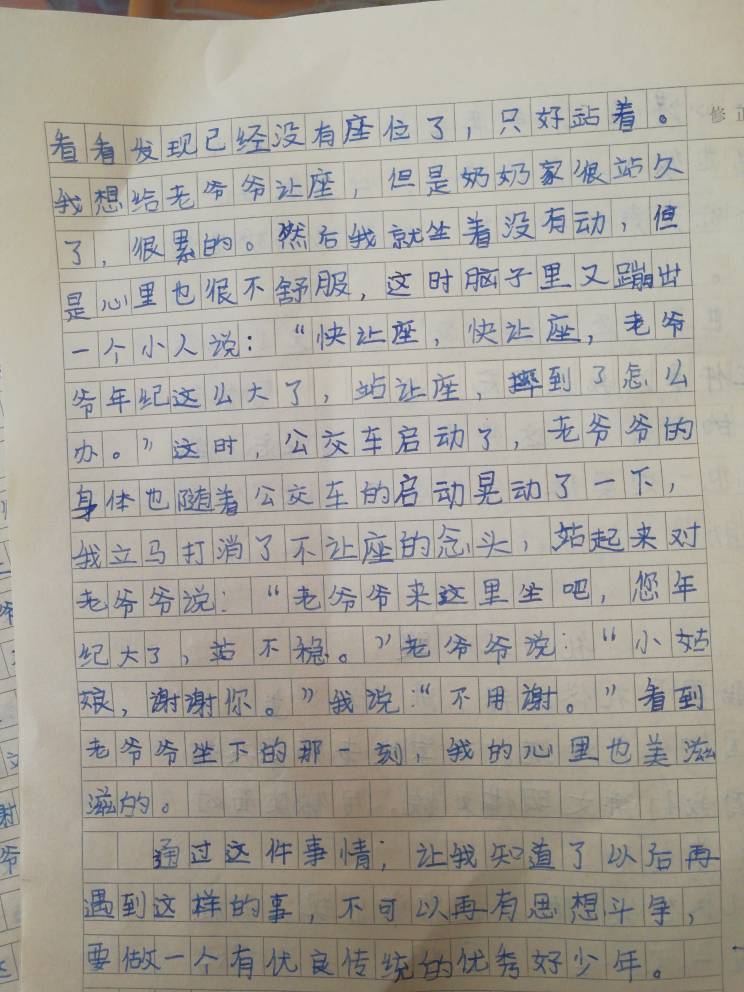 看看发现已经没有座位了，只好站着。
修正
我想给老爷爷让座，但是奶奶家很站久
了，很累的。然后我就坐着没有动，但
是心里也很不舒服，这时脑子里又蹦出
一个小人说：“快让座，快让座，老爷
爷年纪这么大了，站让座，摔到了怎么
办。”这时，公交车启动了，老爷爷的
身体也随着公交车的启动晃动了一下，
我立马打消了不让座的念头，站起来对
老爷爷说：“老爷爷来这里坐吧，您年
纪大了，站不稳。”老爷爷说：“小姑
娘，谢谢你。”我说：“不用谢。”看到
老爷爷坐下的那一刻，我的心里也美滋
滋的。
通过这件事情，让我知道了以后再
遇到这样的事，不可以再有思想斗争，
要做一个有优良传统的优秀好少年。